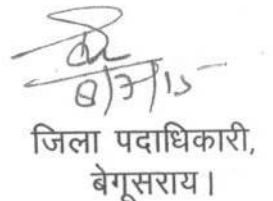 8/7/15
जिला पदाधिकारी,
बेगूसराय।